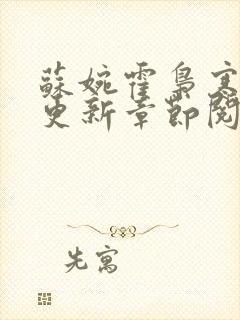 蘇婉霍梟寒
更新章節閱
先寓